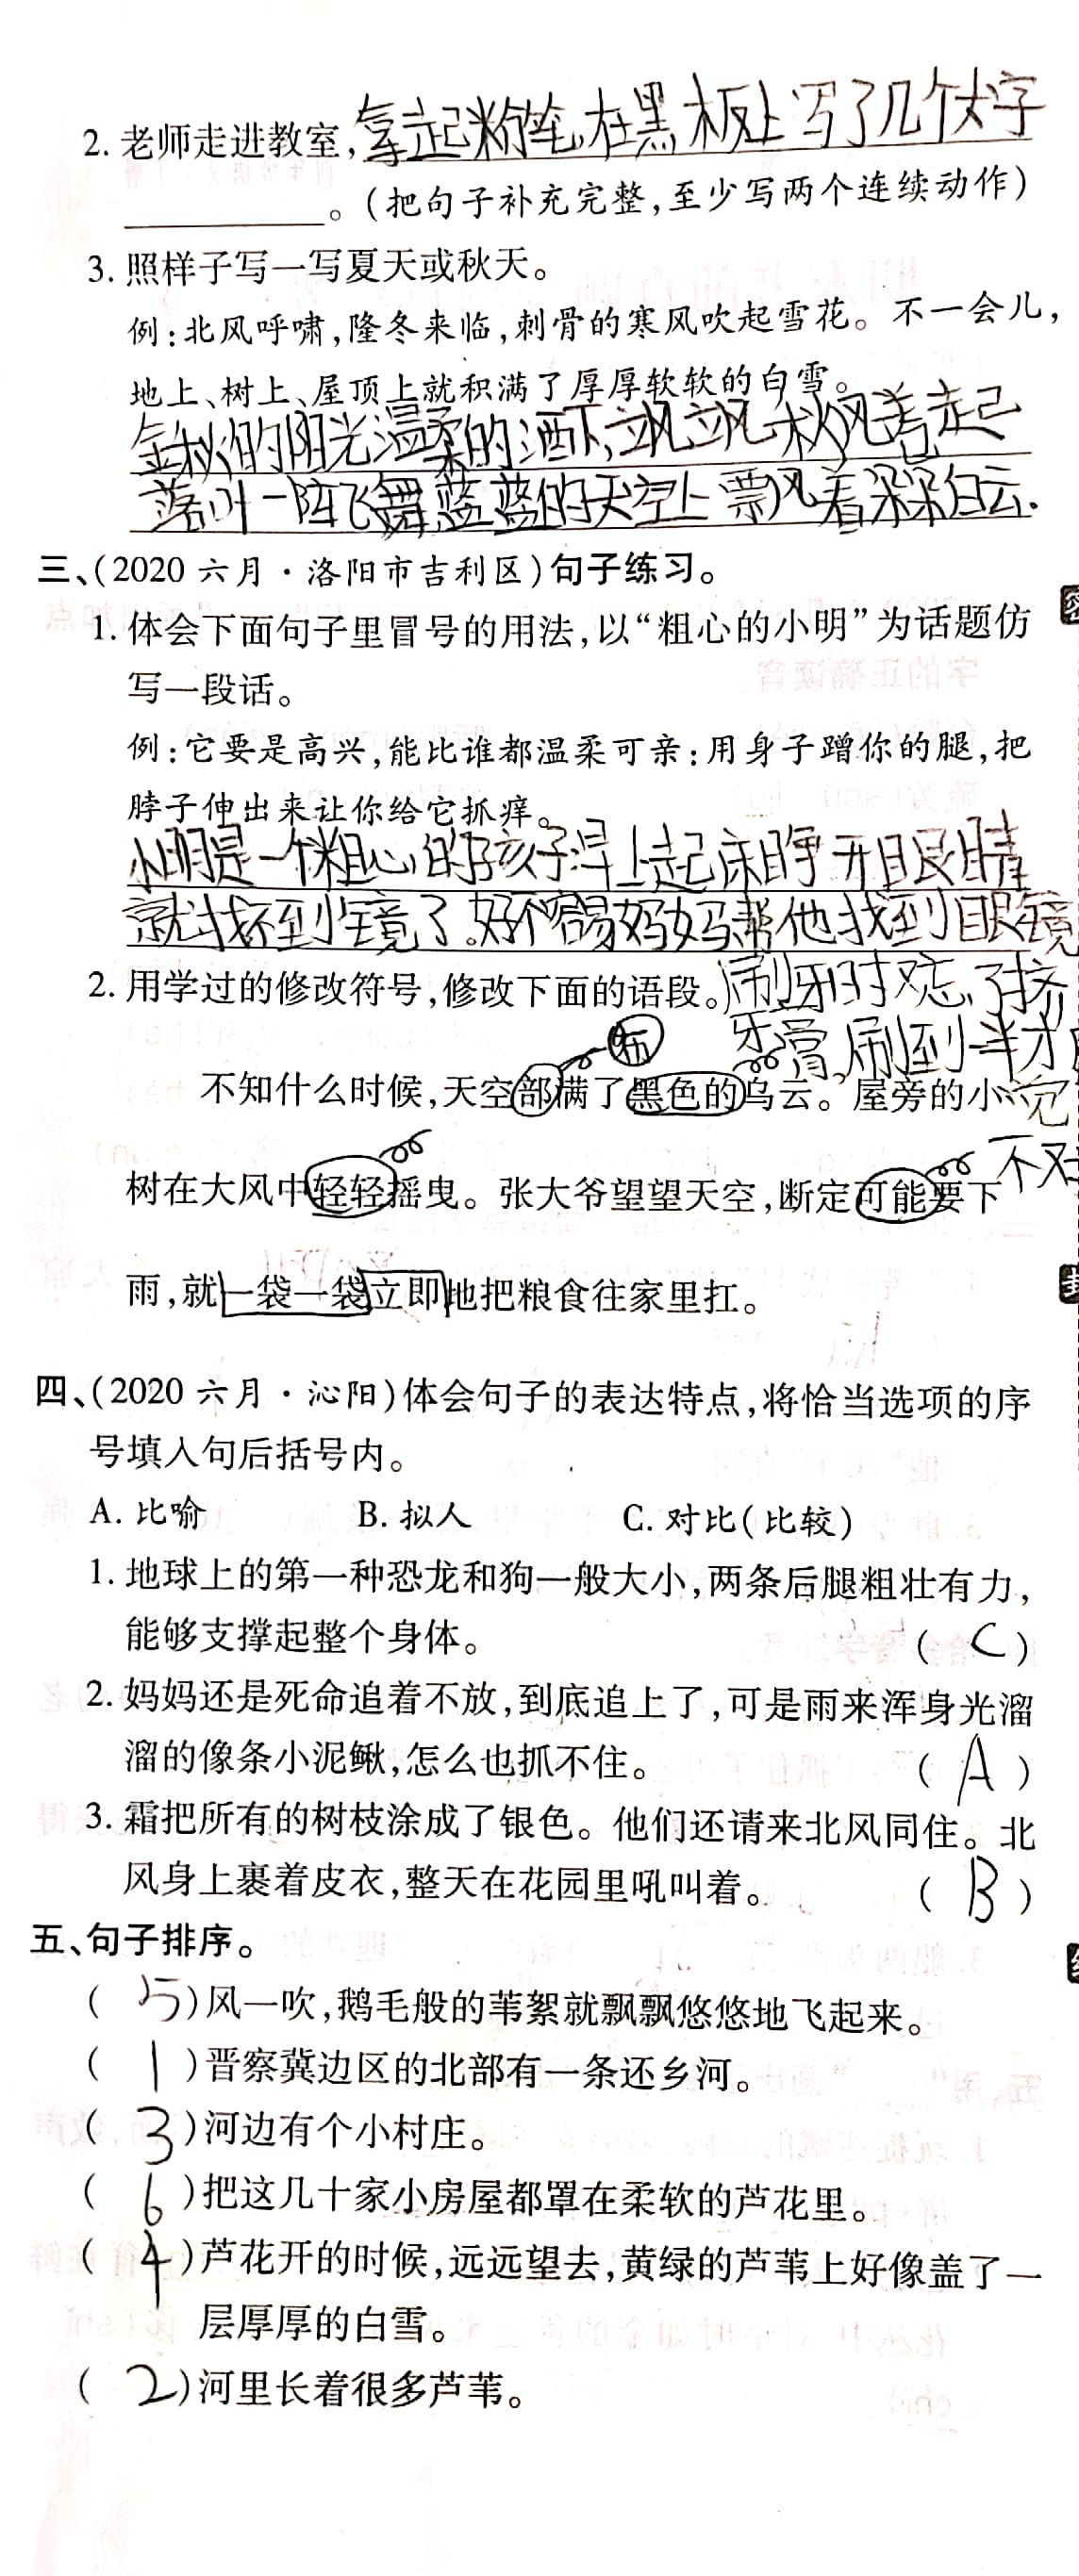 2. 老师走进教室,拿起粉笔,在黑板上写了几个大字
。(把句子补充完整,至少写两个连续动作)
3. 照样子写一写夏天或秋天。
例:北风呼啸,隆冬来临,刺骨的寒风吹起雪花。不一会儿,
地上、树上、屋顶上就积满了厚厚软软的白雪。
金秋的阳光温柔的洒下,飒飒秋风卷起
落叶一阵飞舞,蓝蓝的天空上飘着朵朵白云.
三、(2020 六月·洛阳市吉利区)句子练习。
1. 体会下面句子里冒号的用法,以“粗心的小明”为话题仿
写一段话。
例:它要是高兴,能比谁都温柔可亲:用身子蹭你的腿,把
脖子伸出来让你给它抓痒。
小明是一个粗心的孩子:早上起床睁开眼睛
就找不到眼镜了。好不容易妈妈帮他找到眼镜
2. 用学过的修改符号,修改下面的语段。刷牙时又忘了挤
牙膏,刷到一半才
布
不知什么时候,天空部满了黑色的乌云。屋旁的小
不对
树在大风中轻轻摇曳。张大爷望望天空,断定可能要下
雨,就一袋一袋立即地把粮食往家里扛。
四、(2020 六月·沁阳)体会句子的表达特点,将恰当选项的序
号填入句后括号内。
A. 比喻 B. 拟人 C. 对比(比较)
1. 地球上的第一种恐龙和狗一般大小,两条后腿粗壮有力,
能够支撑起整个身体。 ( C )
2. 妈妈还是死命追着不放,到底追上了,可是雨来浑身光溜
溜的像条小泥鳅,怎么也抓不住。 ( A )
3. 霜把所有的树枝涂成了银色。他们还请来北风同住。北
风身上裹着皮衣,整天在花园里吼叫着。 ( B )
五、句子排序。
( 5 )风一吹,鹅毛般的苇絮就飘飘悠悠地飞起来。
( 1 )晋察冀边区的北部有一条还乡河。
( 3 )河边有个小村庄。
( 6 )把这几十家小房屋都罩在柔软的芦花里。
( 4 )芦花开的时候,远远望去,黄绿的芦苇上好像盖了一
层厚厚的白雪。
( 2 )河里长着很多芦苇。